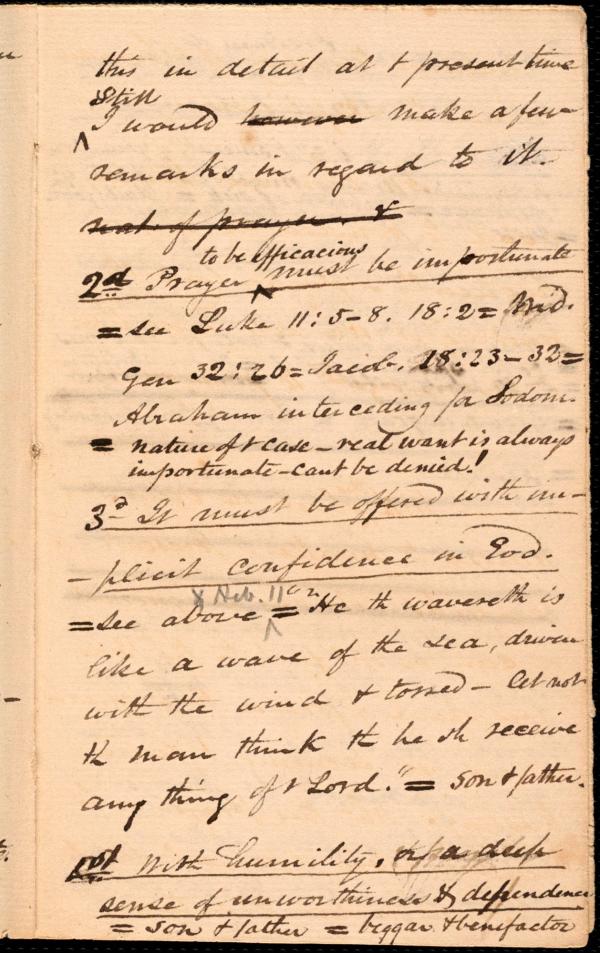 this in detail at t present time
Still
I would however make a few
remarks in regard to it.
not of prayer. &
to be efficacious
2d Prayer must be importunate
= see Luke 11:5-8. 18:2 = Wid.
Gen 32:26 = Jacob. 18:23-32 =
Abraham interceding for Sodom.
= nature of t case - real want is always
importunate - cant be denied!
3d It must be offered with im-
-plicit confidence in God.
& Heb. 11
= see above = "He th wavereth is
like a wave of the sea, driven
with the wind & tossed - let not
th man think th he sh receive
any thing of t Lord." = son & father.
With humility, a deep
sense of unworthiness & dependence
= son & father = beggar & benefactor